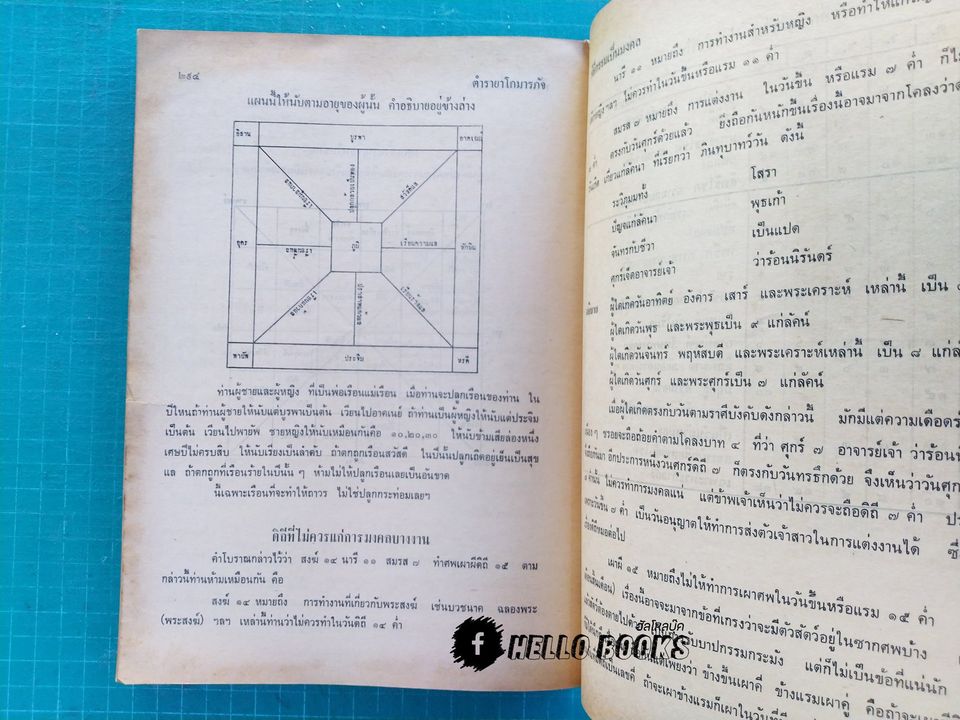 ๒๙๔
ตำรายาโกมารภัจ
แผนนี้ให้นับตามอายุของผู้นั้น คำอธิบายอยู่ข้างล่าง
อิสาน
บูรพา
อาคเณย์
อุดร
ภูมิ
เรือนความแล
ทักษิณ
พายัพ
ประจิม
หรดี
ท่านผู้ชายและผู้หญิง ที่เป็นพ่อเรือนแม่เรือน เมื่อท่านจะปลูกเรือนของท่าน ใน
ปีไหนถ้าท่านผู้ชายให้นับแต่บูรพาเป็นต้น เวียนไปอาคเณย์ ถ้าท่านเป็นผู้หญิงให้นับแต่ประจิม
เป็นต้น เวียนไปพายัพ ชายหญิงให้นับเหมือนกันคือ ๑๐,๒๐,๓๐ ให้นับข้ามเสียสองหนึ่ง
เศษปีไม่ครบสิบ ให้นับเรียงเป็นลำดับ ถ้าตกถูกเรือนสวัสดี ในปีนั้นปลูกเถิดอยู่เย็นเป็นสุข
แล ถ้าตกถูกที่เรือนร้ายในปีนั้น ๆ ห้ามไม่ให้ปลูกเรือนเลยเป็นอันขาด
นี้เฉพาะเรือนที่จะทำให้ถาวร ไม่ใช่ปลูกกระท่อมเลยฯ
ดิถีที่ไม่ควรแก่การมงคลบางงาน
คำโบราณกล่าวไว้ว่า สงฆ์ ๑๔ นารี ๑๑ สมรส ๗ ทำศพเผาผีดิถี ๑๕ ตาม
กล่าวนี้ท่านห้ามเหมือนกัน คือ
สงฆ์ ๑๔ หมายถึง การทำงานที่เกี่ยวกับพระสงฆ์ เช่นบวชนาค ฉลองพระ
(พระสงฆ์) ฯลฯ เหล่านี้ท่านว่าไม่ควรทำในวันดิถี ๑๔ ค่ำ
นารี ๑๑ หมายถึง การทำงานสำหรับหญิง
ไม่ควรทำในวันขึ้นหรือแรม ๑๑ ค่ำ
สมรส ๗ หมายถึง การแต่งงาน ในวันขึ้น หรือแรม ๗ ค่ำ
ตรงกับวันศุกร์ด้วยแล้ว ยิ่งถือกันหนักขึ้นเรื่องนี้อาจมาจากโคลงว่า
เกี่ยวแก่ลัคนา ที่เรียกว่า ภินทุบาทว์วัน ดังนี้
ระวิภุมมทั้ง โสรา
ปัญจแก่ลัคนา พุธเก้า
จันทรกับชีวา เป็นแปด
ศุกร์เจ็ดอาจารย์เจ้า ว่าร้อนนิรันดร์
ผู้ใดเกิดวันอาทิตย์ อังคาร เสาร์ และพระเคราะห์ เหล่านี้ เป็น
ผู้ใดเกิดวันพุธ และพระพุธเป็น ๙ แก่ลัคน์
ผู้ใดเกิดวันจันทร์ พฤหัสบดี และพระเคราะห์เหล่านี้ เป็น ๘
ผู้ใดเกิดวันศุกร์ และพระศุกร์เป็น ๗ แก่ลัคน์
เมื่อผู้ใดเกิดตรงกับวันตามราศีบังคับดังกล่าวนี้ มักมีแต่ความเดือด
ชรอยจะถือถ้อยคำตามโคลงบาท ๔ ที่ว่า ศุกร์ ๗ อาจารย์เจ้า
อีกประการหนึ่งวันศุกร์ดิถี ๗ ก็ตรงกับวันทรธึกด้วย จึงเห็นว่า
ไม่ควรทำการมงคลแน่ แต่ข้าพเจ้าเห็นว่าไม่ควรจะถือดิถี ๗ ค่ำ
๗ ค่ำ เป็นวันอนุญาตให้ทำการส่งตัวเจ้าสาวในการแต่งงานได้
เผาผี ๑๕ หมายถึงไม่ให้ทำการเผาศพในวันขึ้นหรือแรม ๑๕ ค่ำ
เรื่องนี้อาจจะมาจากข้อที่เกรงว่าจะมีตัวสัตว์อยู่ในซากศพบ้าง
แต่ก็ไม่เป็นข้อที่แน่นัก
ข้างขึ้นเผาคี่ ข้างแรมเผาคู่
ฮัลโหลบุ๊ค
f HELLO BOOKS